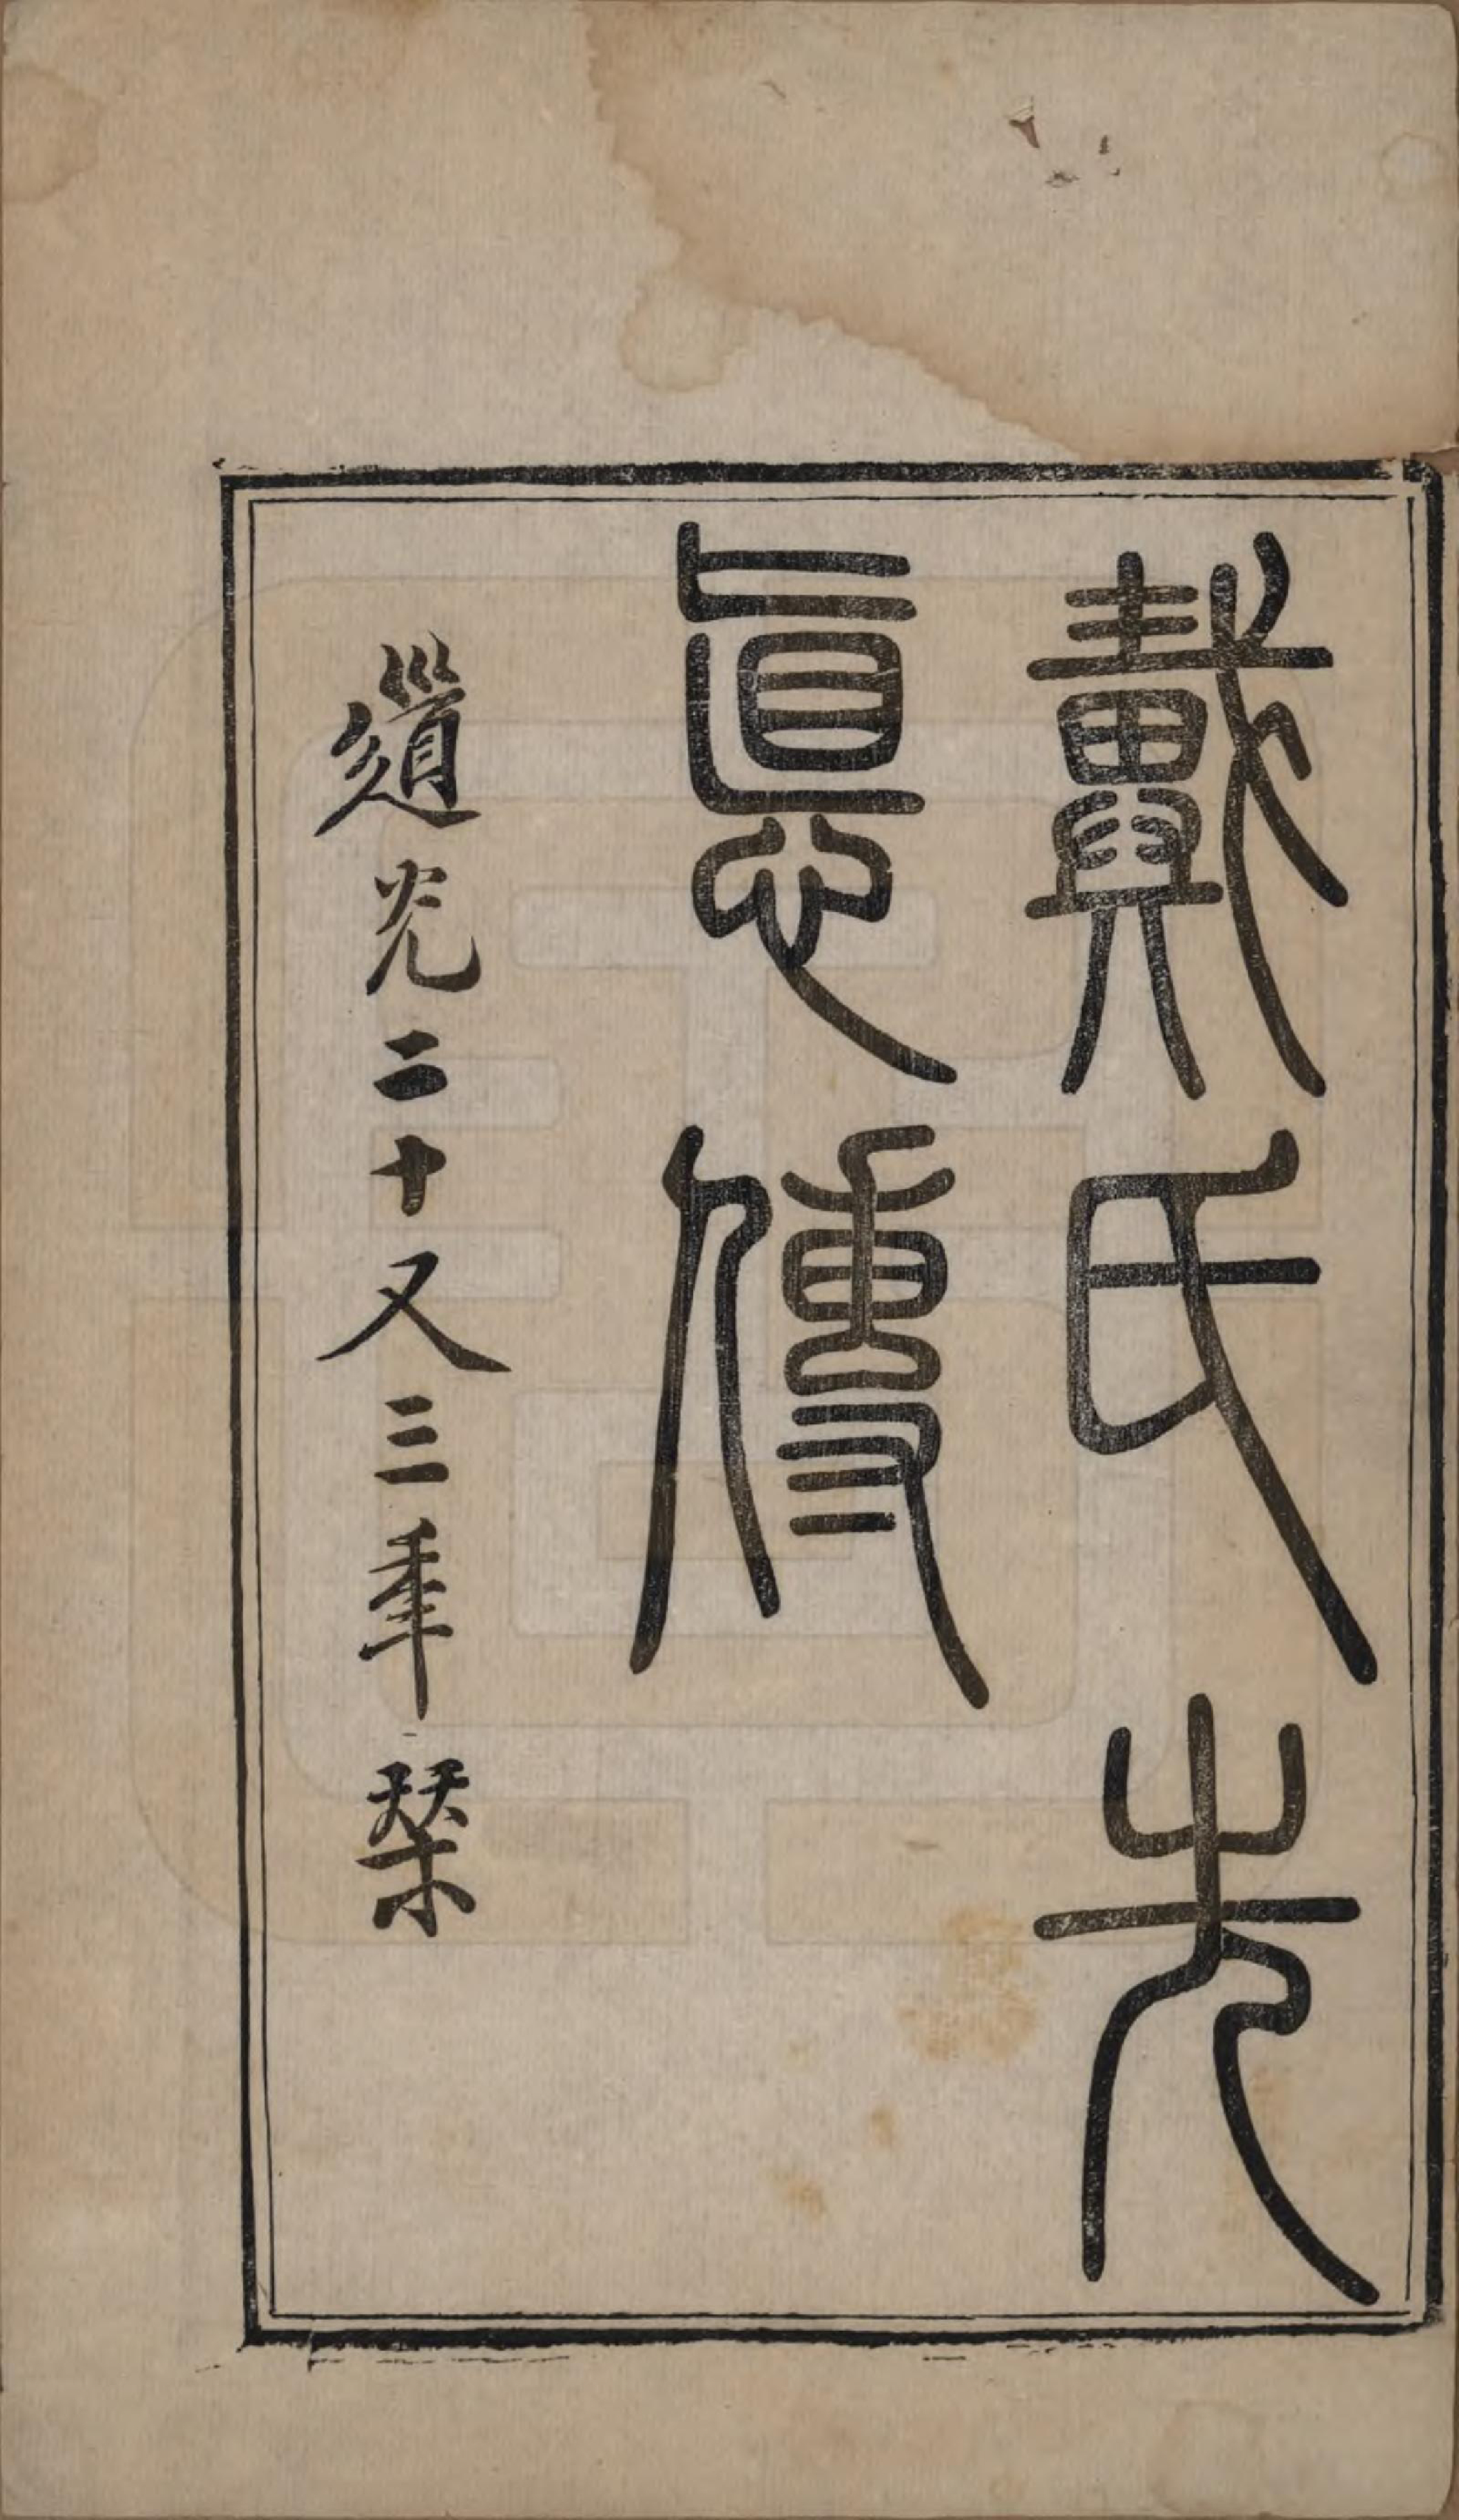 戴氏先
悳傳
道光二十又三秊栞